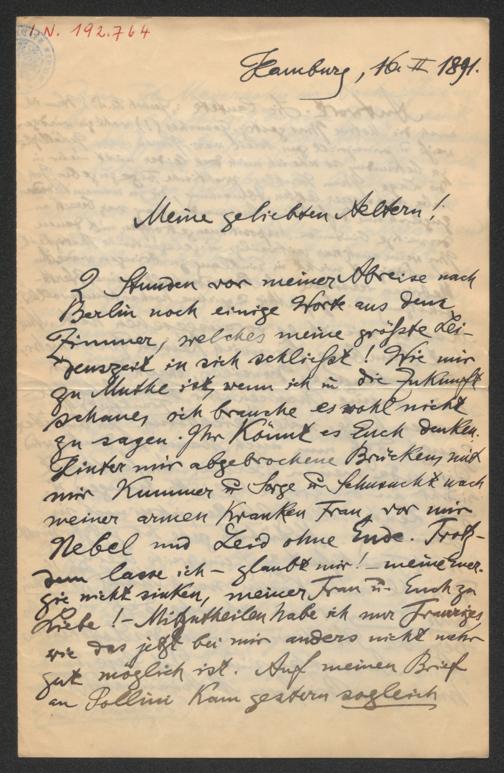 I.N. 192.764
Hamburg, 16. II 1891.
Meine geliebten Aeltern!
2 Stunden vor meiner Abreise nach
Berlin noch einige Worte aus dem
Zimmer, welches meine größte Lei-
denszeit in sich schließt! Wie mir
zu Muthe ist, wenn ich in die Zukunft
schaue, ich brauche es wohl nicht
zu sagen. Ihr könnt es Euch denken.
Hinter mir abgebrochene Brücken, mit
mir Kummer u Sorge u Sehnsucht nach
meiner armen kranken Frau, vor mir
Nebel und Leid ohne Ende. Trotz-
dem lasse ich – glaubt mir! – meine Ener-
gie nicht sinken, meiner Frau u. Euch zu
Liebe! – Mitzutheilen habe ich nur Trauriges,
wie das jetzt bei mir anders nicht mehr
gut möglich ist. Auf meinen Brief
an Pollini kam gestern sogleich